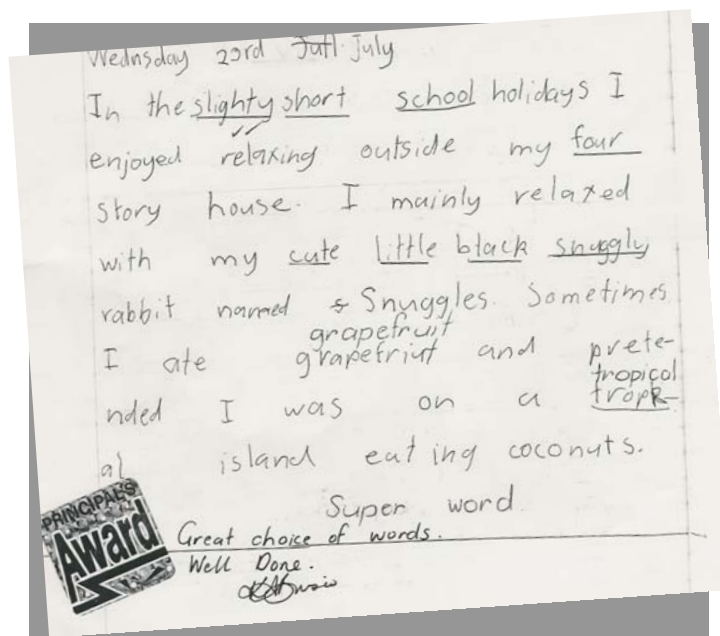 Wednsday 23rd Jutl July
In the slighty short school holidays I
enjoyed relaxing outside my four
story house. I mainly relaxed
with my cute little black snuggly
rabbit named s Snuggles. Sometimes
grapefruit
I ate grapefriut and prete-
tropical
nded I was on a tropic-
al island eating coconuts.
Super word
PRINCIPAL'S
Award
Great choice of words.
Well Done.